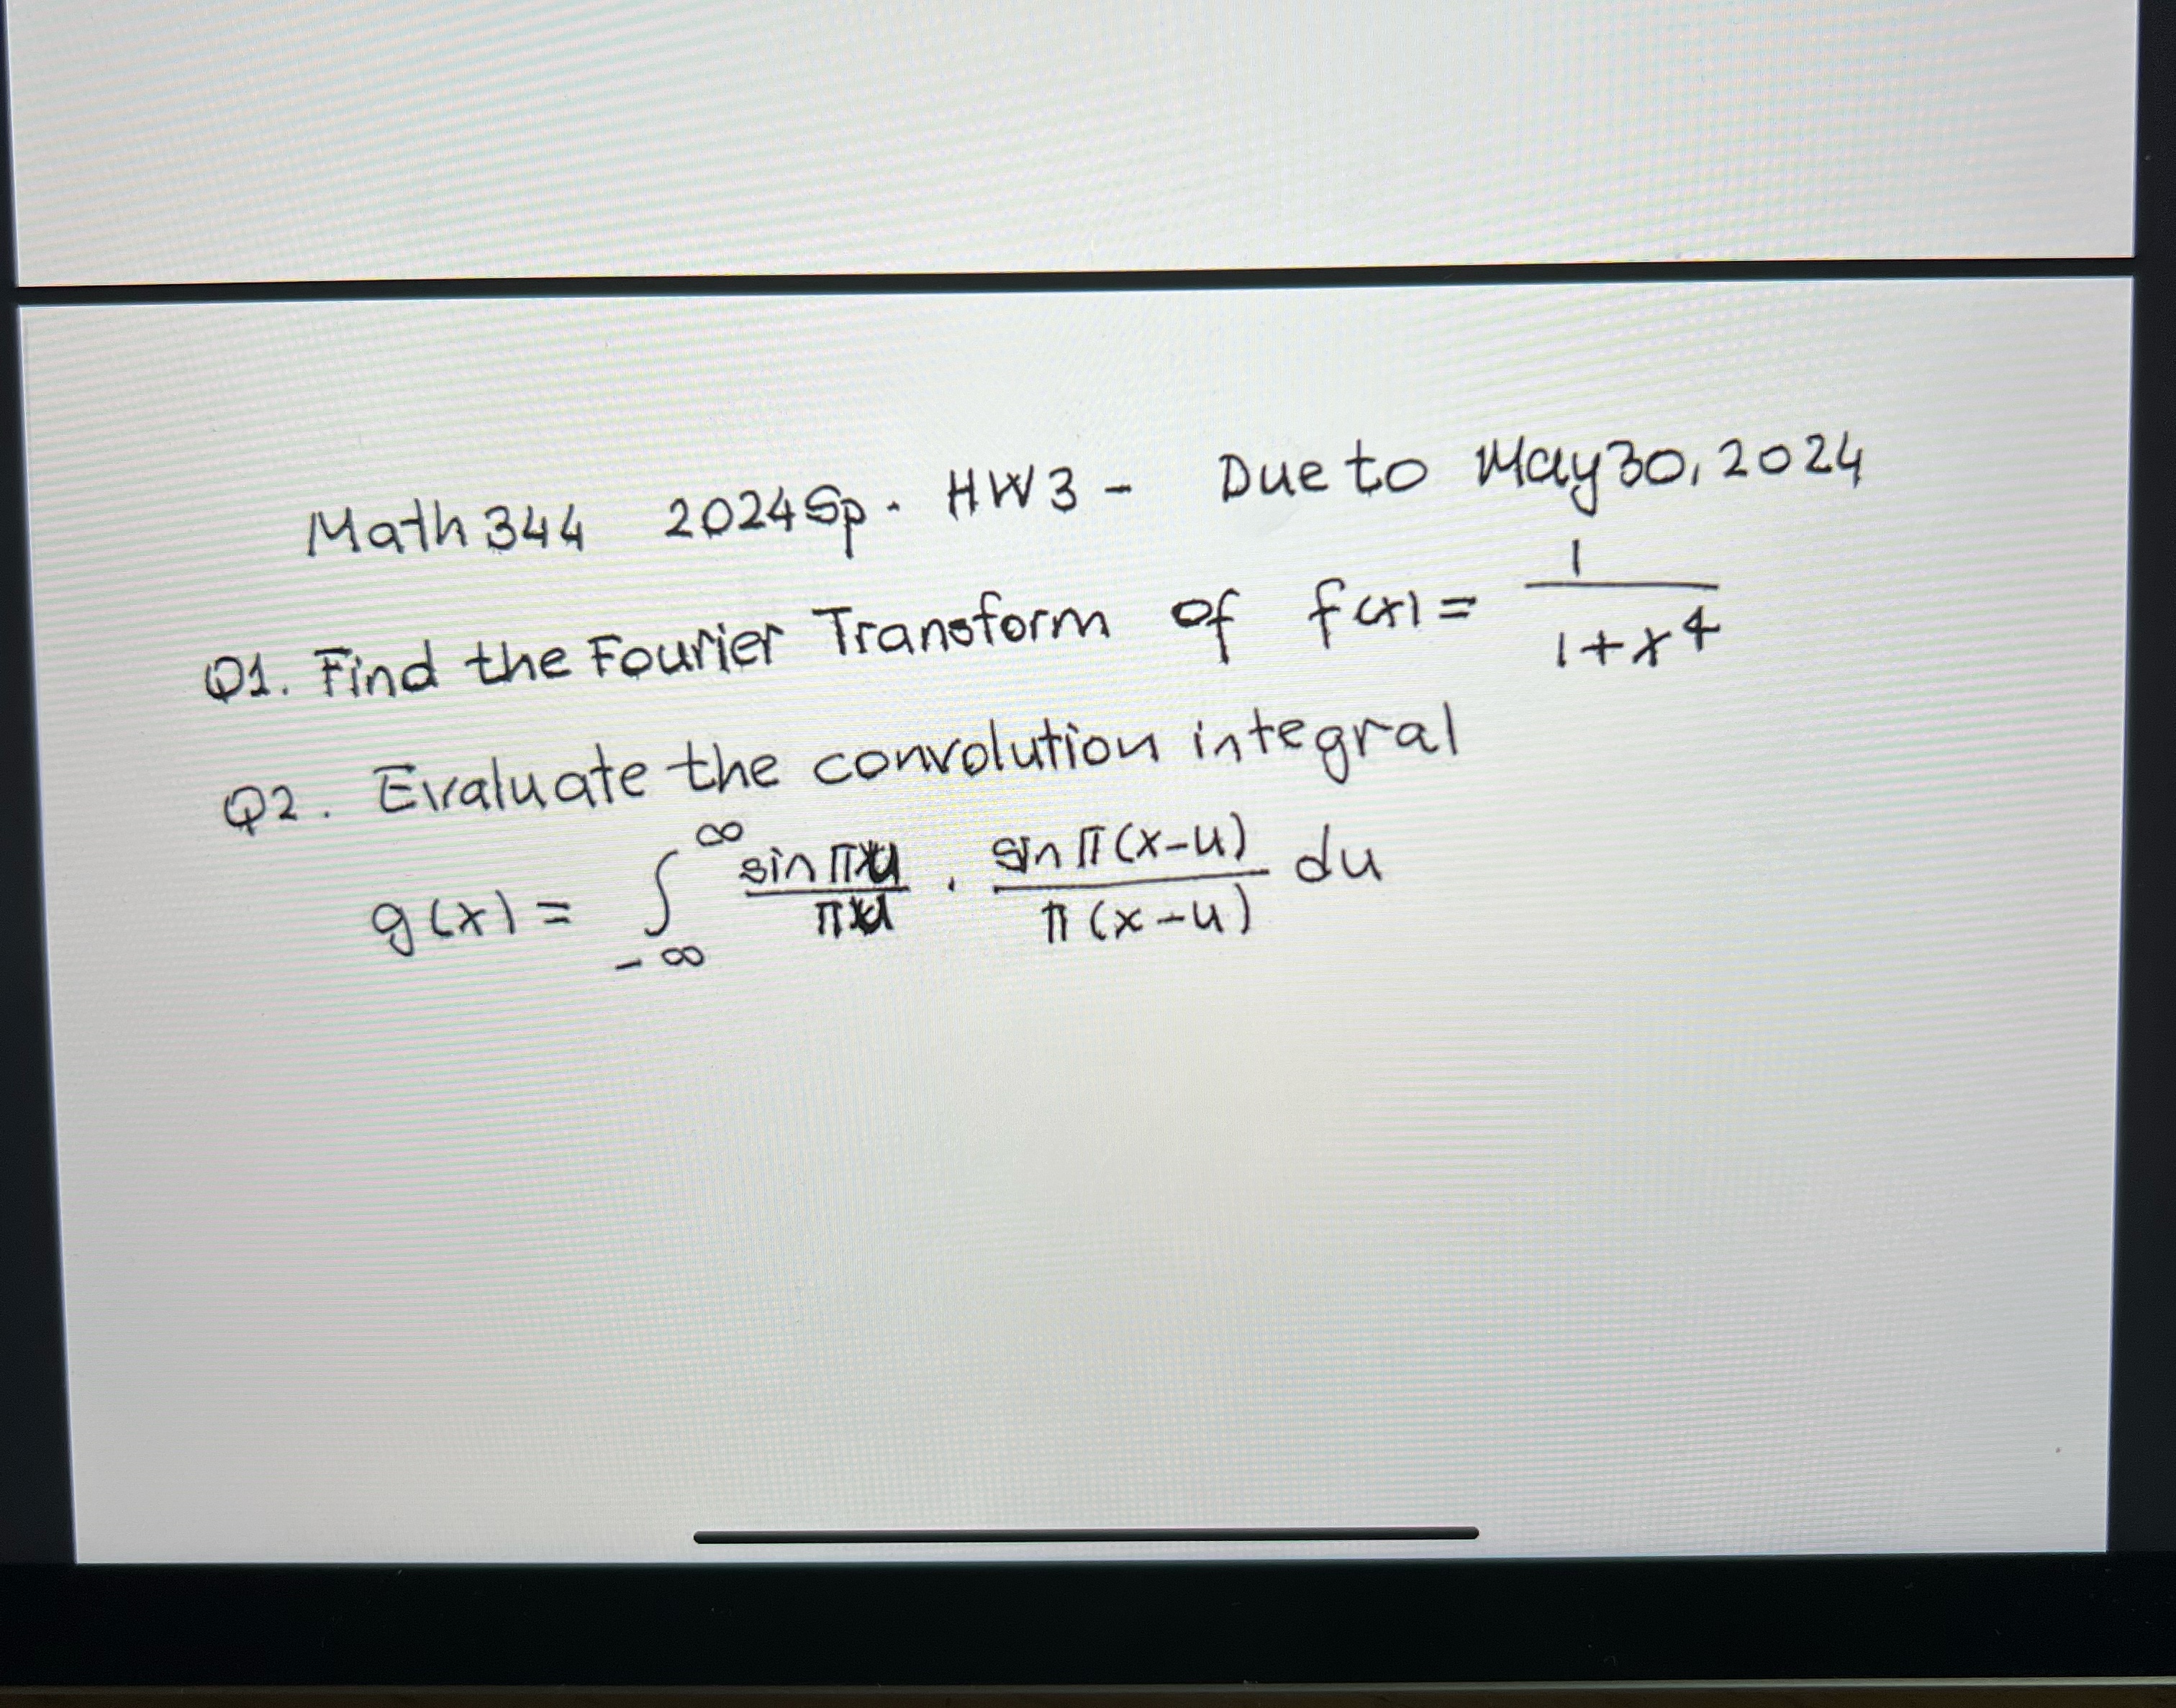 Math 344 2024 Sp. HW3 - Due to May 30, 2024
Q1. Find the Fourier Transform of f(x) = 1/(1+x⁴)
Q2. Evaluate the convolution integral
g(x) = ∫_{-∞}^{∞} (sin πu)/(πu) · (sin π(x-u))/(π(x-u)) du